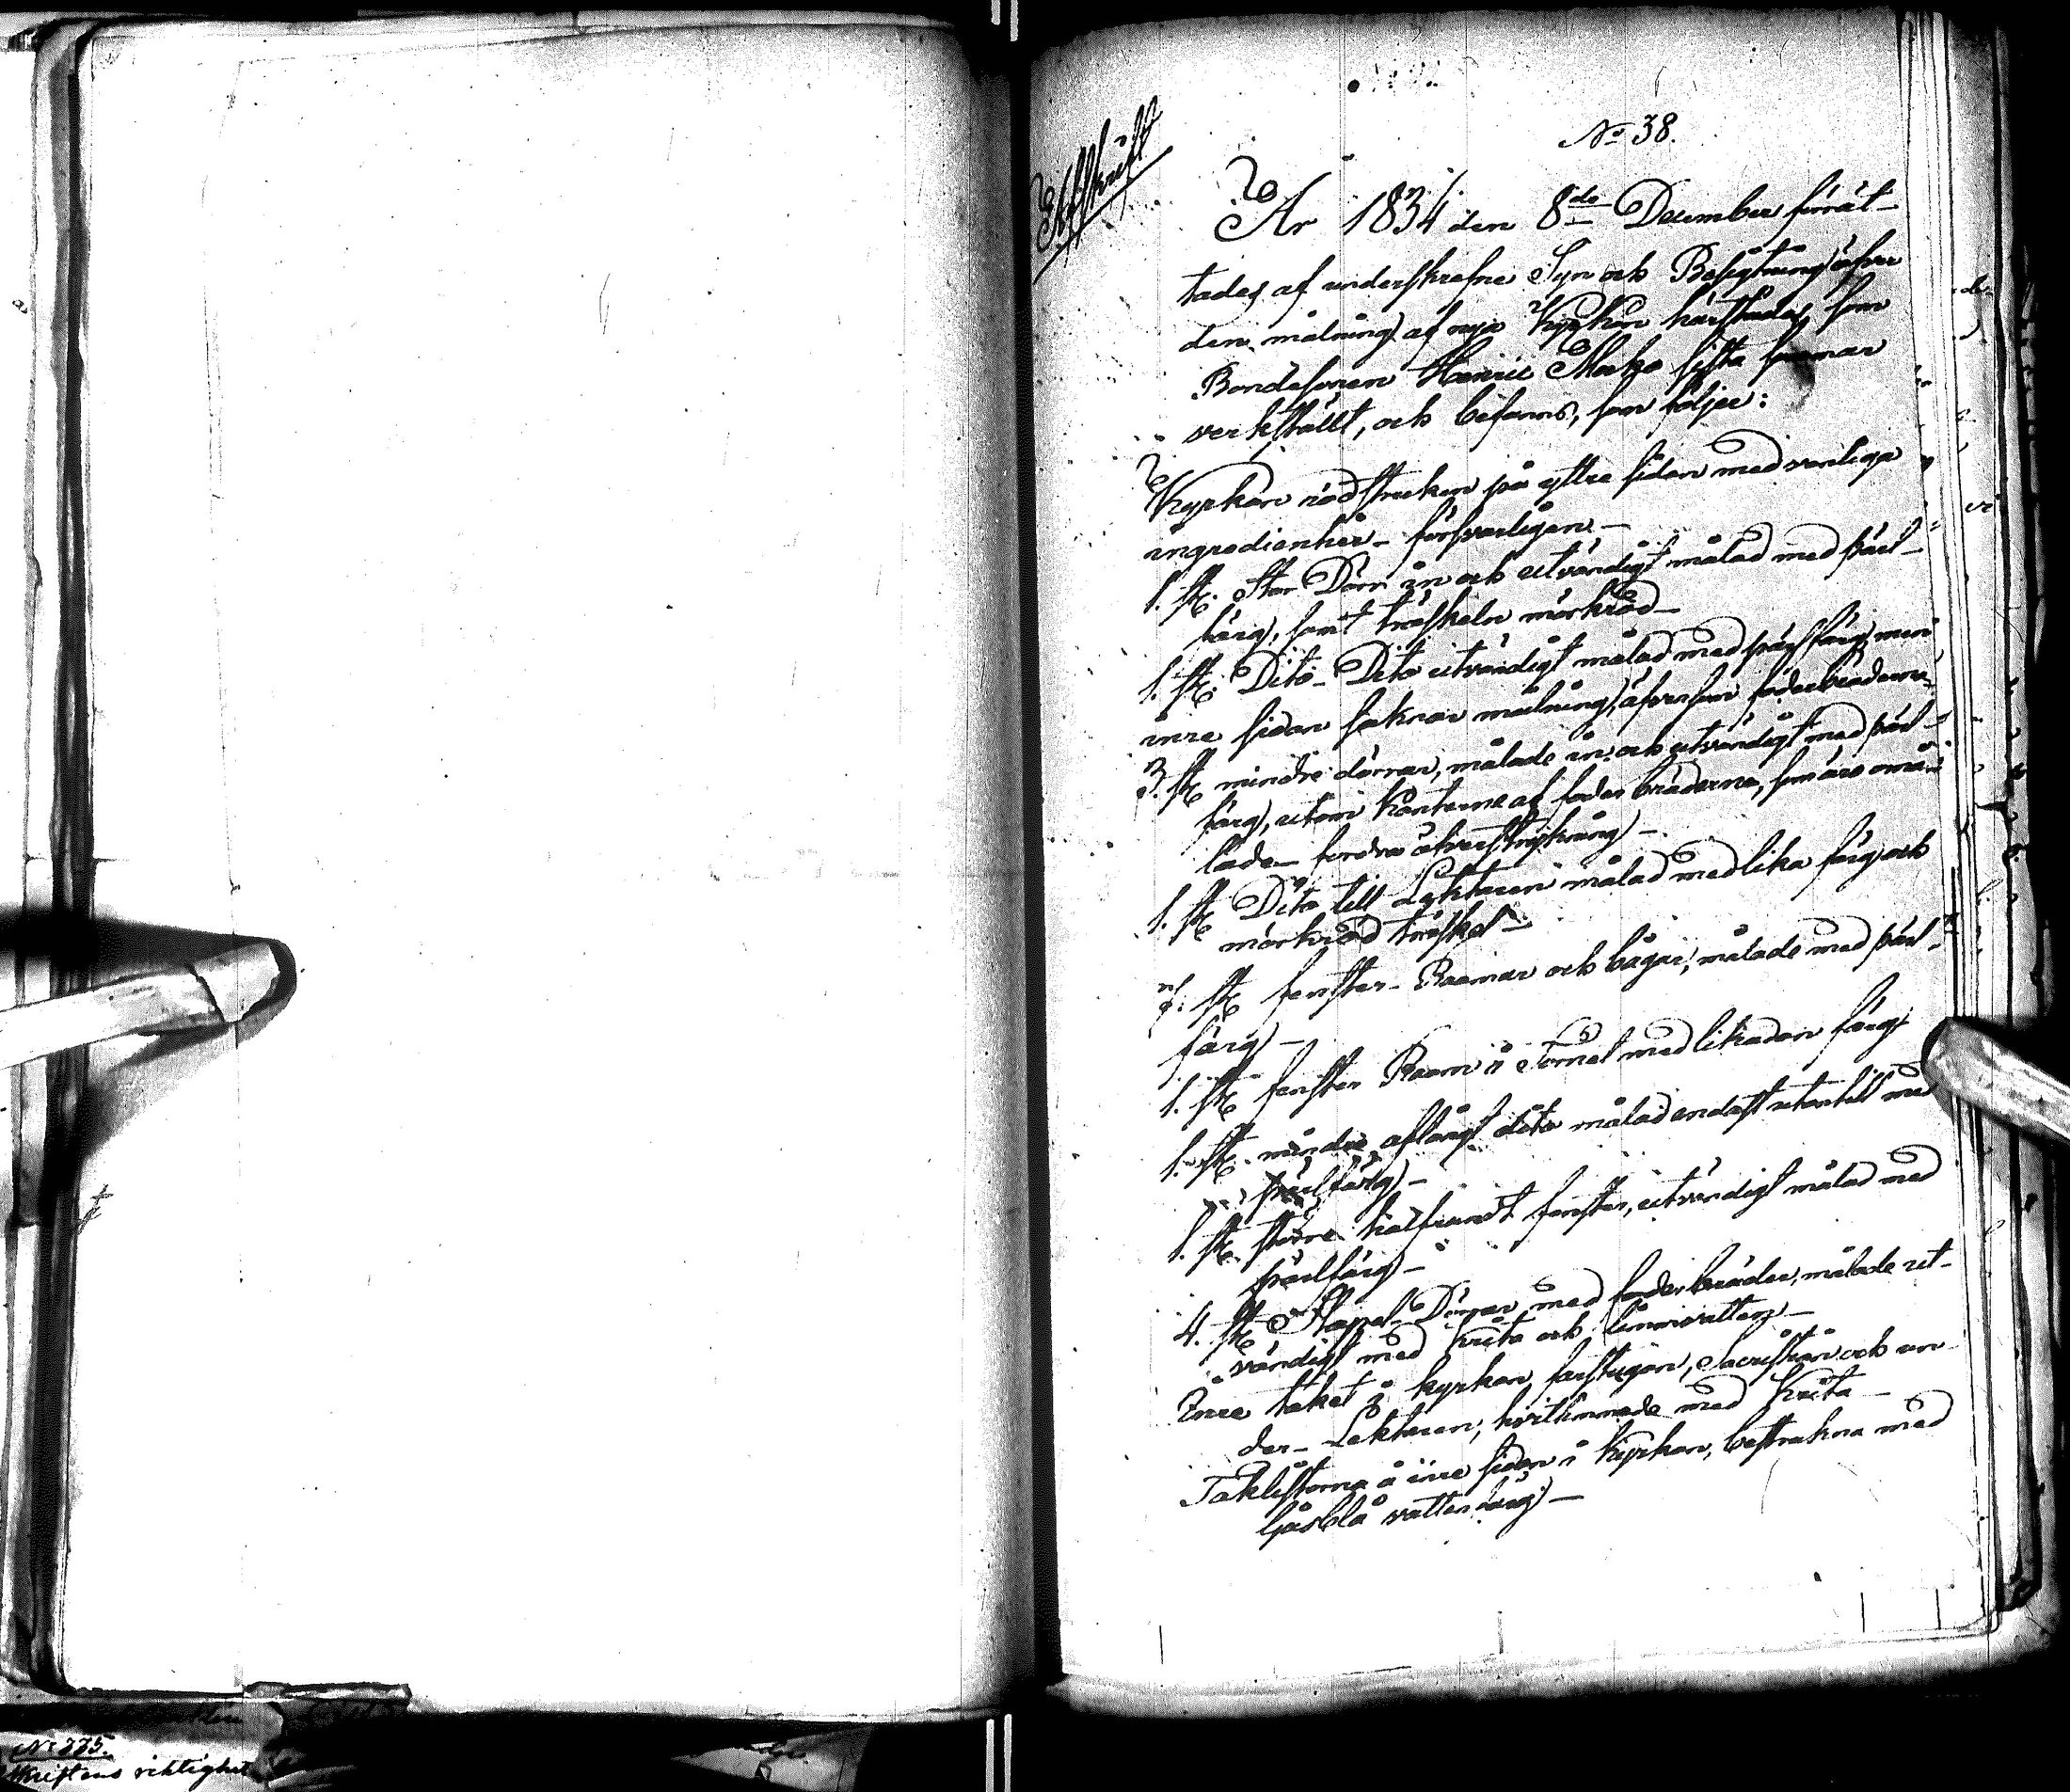 Afskrift
No 38.
År 1834 den 8de December förrät-
tades af underskrefne Syn och Besigtning öfver
den målning af nya Kyrkan härstädes som
Bondesonen Henric sista sommar
verkställt, och befanns, som följer:
Kyrkan rödstruken på yttre sidan med vanliga
ingredienser - försvarligen. -
1. st. Stor Dörr in och utvändigt målad med pärl-
färg, samt tröskeln mörkröd -
1. st. Dito - Dito utvändigt målad med pärlfärg, men
inre sidan saknar målning, äfvensom foderbräderne
3. st mindre dörrar, målade in och utvändigt med pärl-
färg, utom kanterne af foder bräderne, som äro omå-
lade - fordra återstrykning -
1. st Dito till Lektaren målad med lika färg och
mörkröd tröskel -
7. st fenster - Raamar och bågar, målade med pärl-
färg -
1. st fenster Raam i Tornet med likadan färg
1. st. mindre aflångt dito målad endast utantill med
pärlfärg -
1. st. större halfrundt fenster, utvändigt målad med
pärlfärg -
4. st Stapel-Dörrar med foderbräder, målade ut-
vändigt med krita och limmvatten -
Inre taket i kyrkan, farstugan, Sacristian och un-
der - Lektaren, hvitlimmade med Krita -
Taklisterna å inre sidan i Kyrkan, bestrukna med
ljusblå vattenfärg -
No 335.
skriftens riktighet